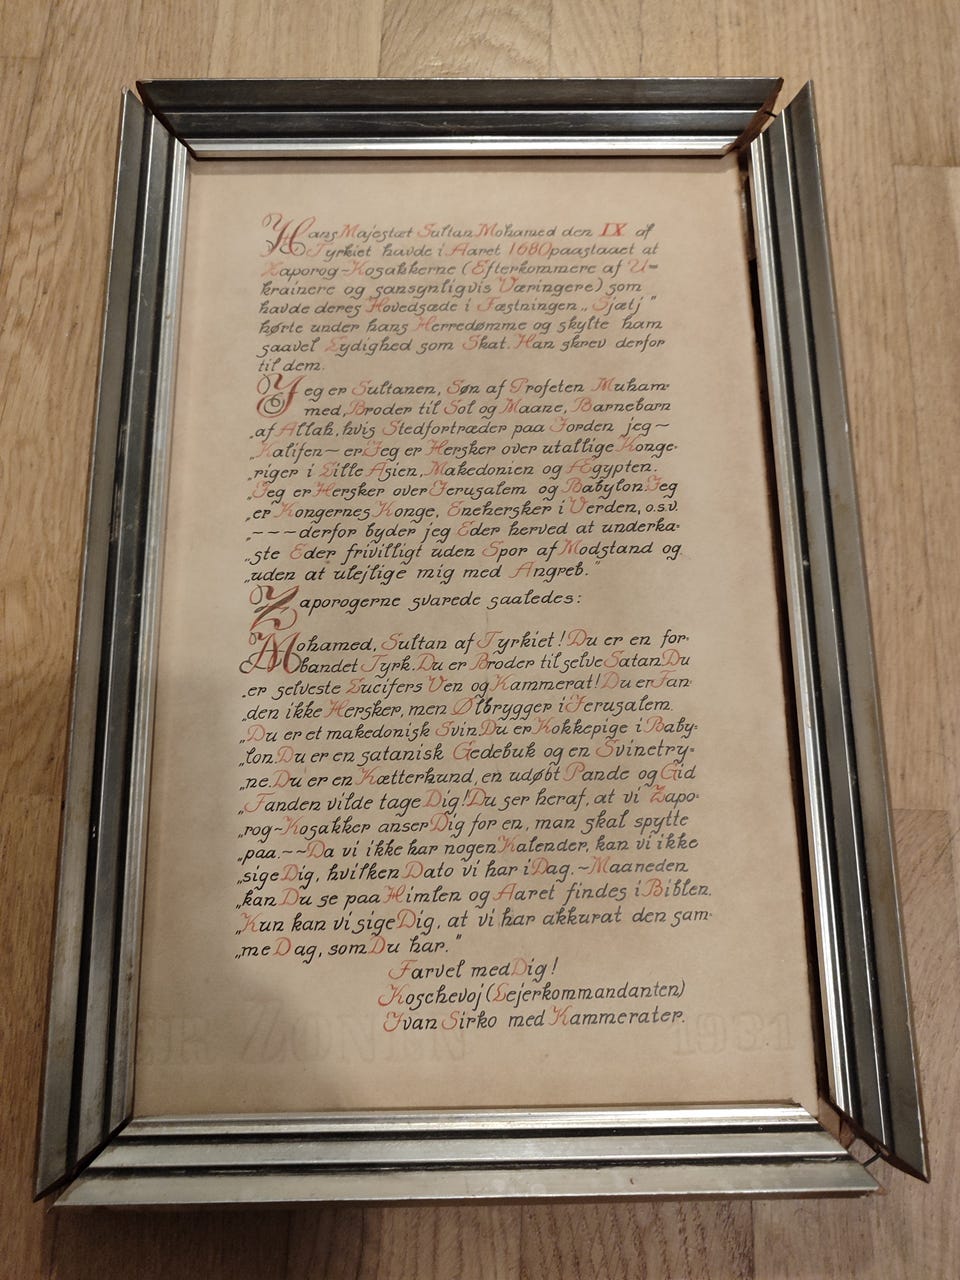 Hans Majestæt Sultan Mohamed den IX af
Tyrkiet havde i Aaret 1680 paastaaet at
Zaporog-Kosakkerne (Efterkommere af U-
krainere og sansynligvis Væringere) som
havde deres Hovedsæde i Fæstningen „Sjætj"
hørte under hans Herredømme og skylte ham
saavel Lydighed som Skat. Han skrev derfor
til dem.
Jeg er Sultanen, Søn af Profeten Muham-
med, Broder til Sol og Maane, Barnebarn
„af Allah, hvis Stedfortræder paa Jorden jeg ~
„Kalifen ~ er Jeg er Hersker over utallige Konge-
„riger i Lille Asien, Makedonien og Ægypten.
„Jeg er Hersker over Jerusalem og Babylon. Jeg
„er Kongernes Konge, Enehersker i Verden, o.s.v.
„---derfor byder jeg Eder herved at underka-
„ste Eder frivilligt uden Spor af Modstand og
„uden at ulejlige mig med Angreb."
Zaporogerne svarede saaledes:
Mohamed, Sultan af Tyrkiet! Du er en for-
bandet Tyrk. Du er Broder til selve Satan. Du
„er selveste Lucifers Ven og Kammerat! Du er Fan-
„den ikke Hersker, men Ølbrygger i Jerusalem.
„Du er et makedonisk Svin. Du er Kokkepige i Baby-
„lon. Du er en satanisk Gedebuk og en Svinetry-
„ne. Du er en Kætterhund, en udøbt Pande og Gid
„Fanden vilde tage Dig! Du ser heraf, at vi Zapo-
„rog-Kosakker anser Dig for en, man skal spytte
„paa.~~Da vi ikke har nogen Kalender, kan vi ikke
„sige Dig, hvilken Dato vi har i Dag.~Maaneden
„kan Du se paa Himlen og Aaret findes i Biblen.
„Kun kan vi sige Dig, at vi har akkurat den sam-
„me Dag, som Du har."
Farvel med Dig!
Koschevoj (Lejerkommandanten)
Ivan Sirko med Kammerater.